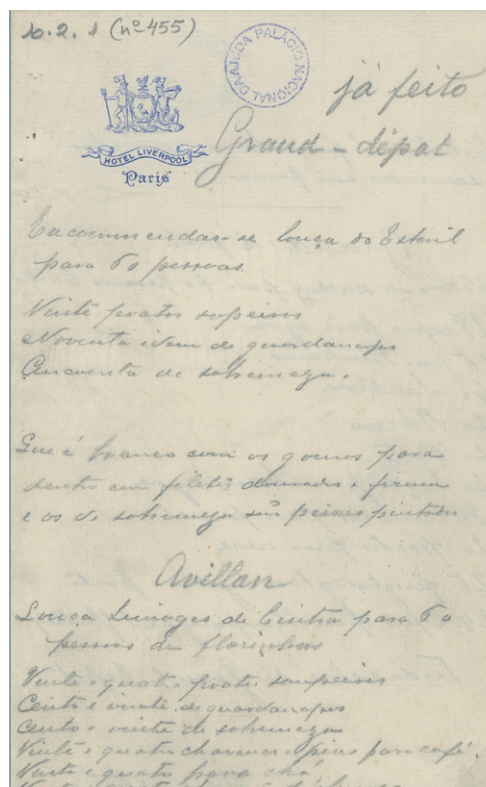 10.2.1 (nº 455)
PALÁCIO NACIONAL DA AJUDA
já feito
HOTEL LIVERPOOL
Paris
Grand-dépot
Encommendar-se louça do Estoril
para 60 pessoas
Vinte pratos sopeiros
Noventa idem de guardanapo
Cincoenta de sobremeza.
Que é branca com os gomos para
dentro em filetes dourados e
e os de sobremeza peixes pintados
Avillan
Louça Limoges de Cintra para 60
pessoas de florinhas
Vinte e quatro pratos soupeiros
Cento e vinte de guardanapos
Cento e vinte de sobremeza
Vinte e quatro chavenas e pires para café.
Vinte e quatro para chá,